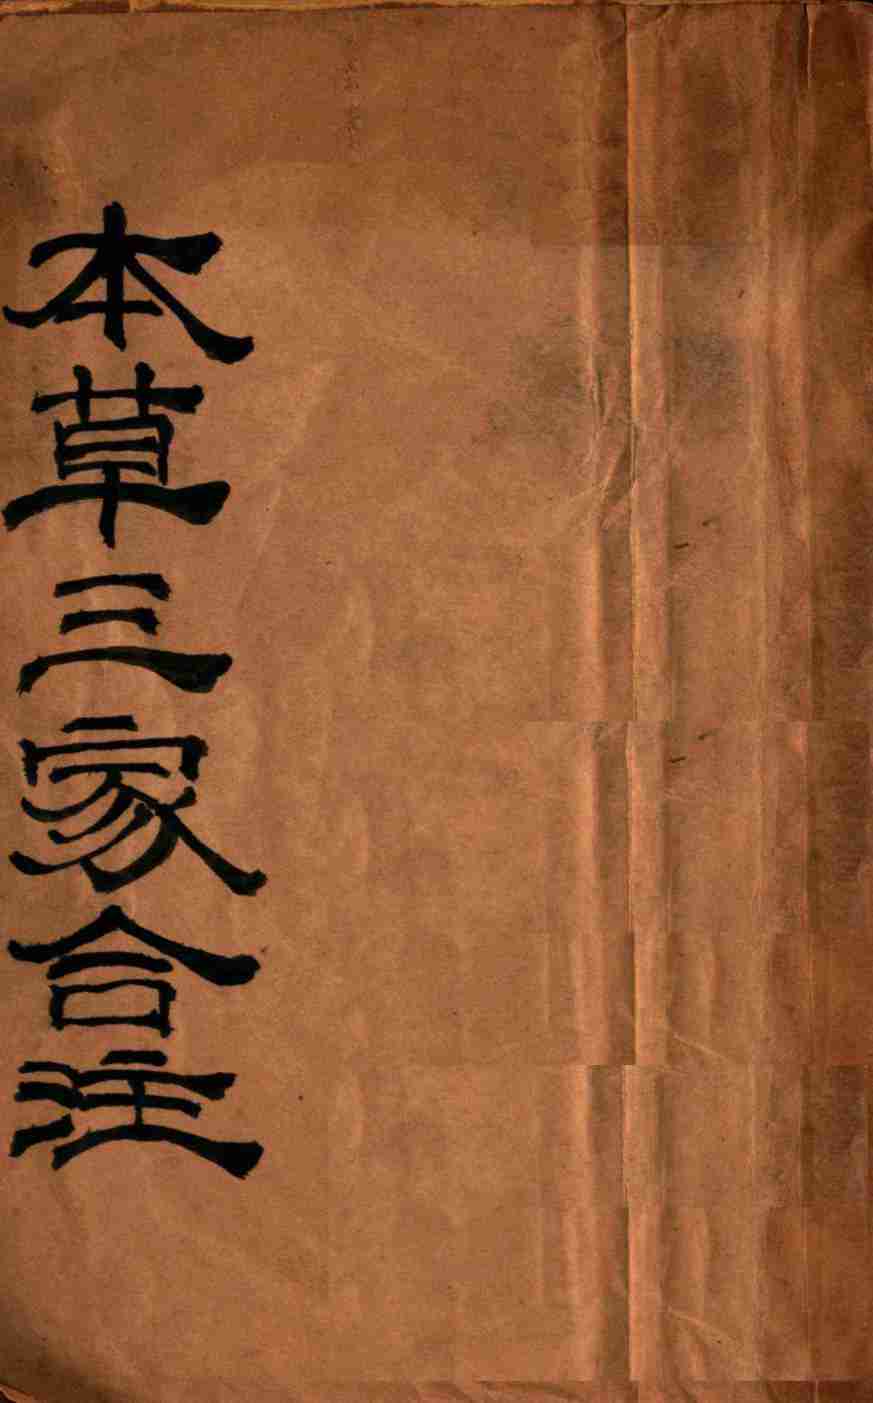 本草三家合注